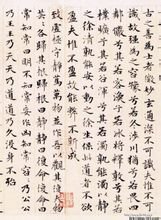 古之善為士者微妙玄通深不可識夫惟不可
識故強為之容豫兮若冬涉川猶兮若畏四
鄰儼兮其若客渙兮若冰將釋敦兮其若
樸曠兮其若谷渾兮其若濁孰能濁以靜
之徐清孰能安以久之徐生保此道者不欲
盈夫惟不盈故能弊不新成
致虛極守靜篤萬物並作吾以觀其復夫物芸
芸各歸其根歸根曰靜靜曰復命復命曰
常知常曰明不知常妄作凶知常容容乃公公
乃王王乃天天乃道道乃久沒身不殆